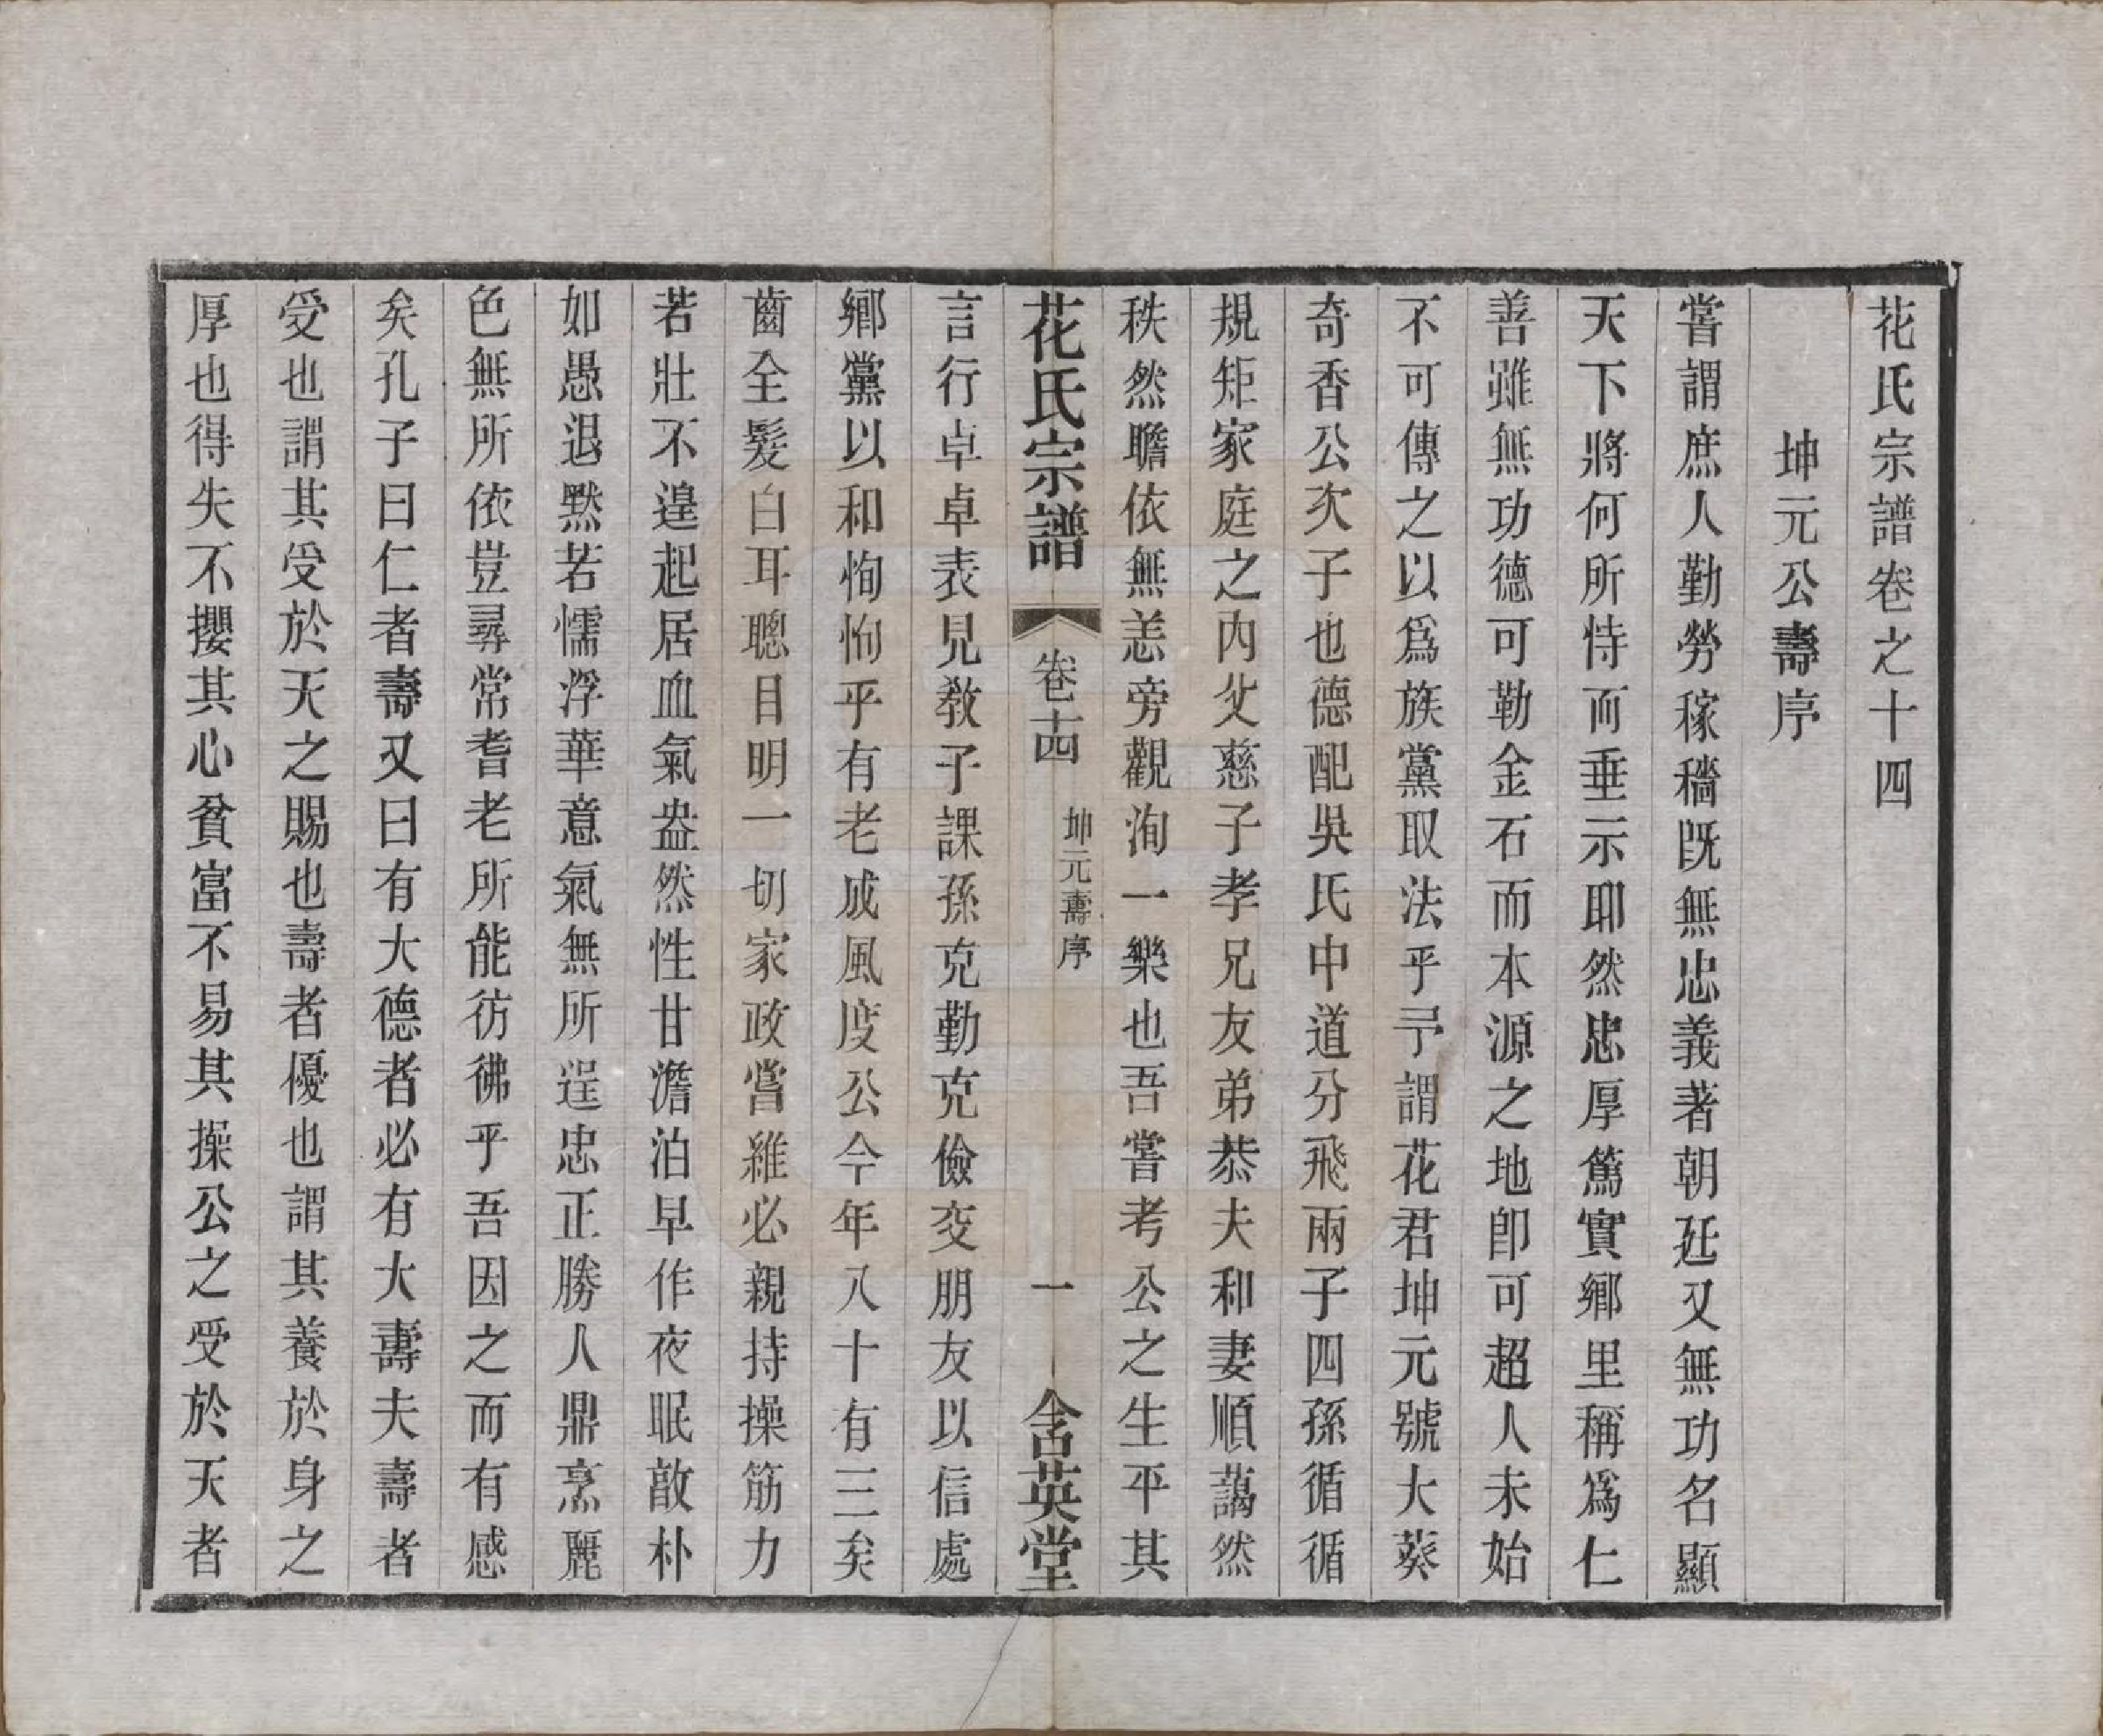 花氏宗譜卷之十四
坤元公壽序
嘗謂庶人勤勞稼穡既無忠義著朝廷又無功名顯
天下將何所恃而垂示耶然忠厚篤實鄉里稱爲仁
善雖無功德可勒金石而本源之地卽可超人未始
不可傳之以爲族黨取法乎予謂花君坤元號大葵
奇香公次子也德配吳氏中道分飛兩子四孫循循
規矩家庭之內父慈子孝兄友弟恭夫和妻順藹然
秩然瞻依無恙旁觀洵一樂也吾嘗考公之生平其
花氏宗譜
卷十四
坤元壽序
一
含英堂
言行卓卓表見教子課孫克勤克儉交朋友以信處
鄉黨以和恂恂乎有老成風度公今年八十有三矣
齒全髮白耳聰目明一切家政嘗維必親持操筋力
若壯不遑起居血氣盎然性甘澹泊早作夜眠敢朴
如愚退默若懦浮華意氣無所逞忠正勝人鼎烹麗
色無所依豈尋常耆老所能彷彿乎吾因之而有感
矣孔子曰仁者壽又曰有大德者必有大壽夫壽者
受也謂其受於天之賜也壽者優也謂其養於身之
厚也得失不攖其心貧富不易其操公之受於天者